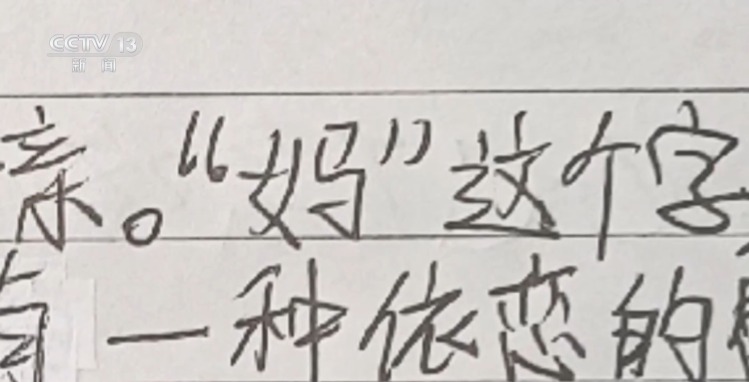 CCTV 13
新闻
亲。“妈”这个字
一种依恋的